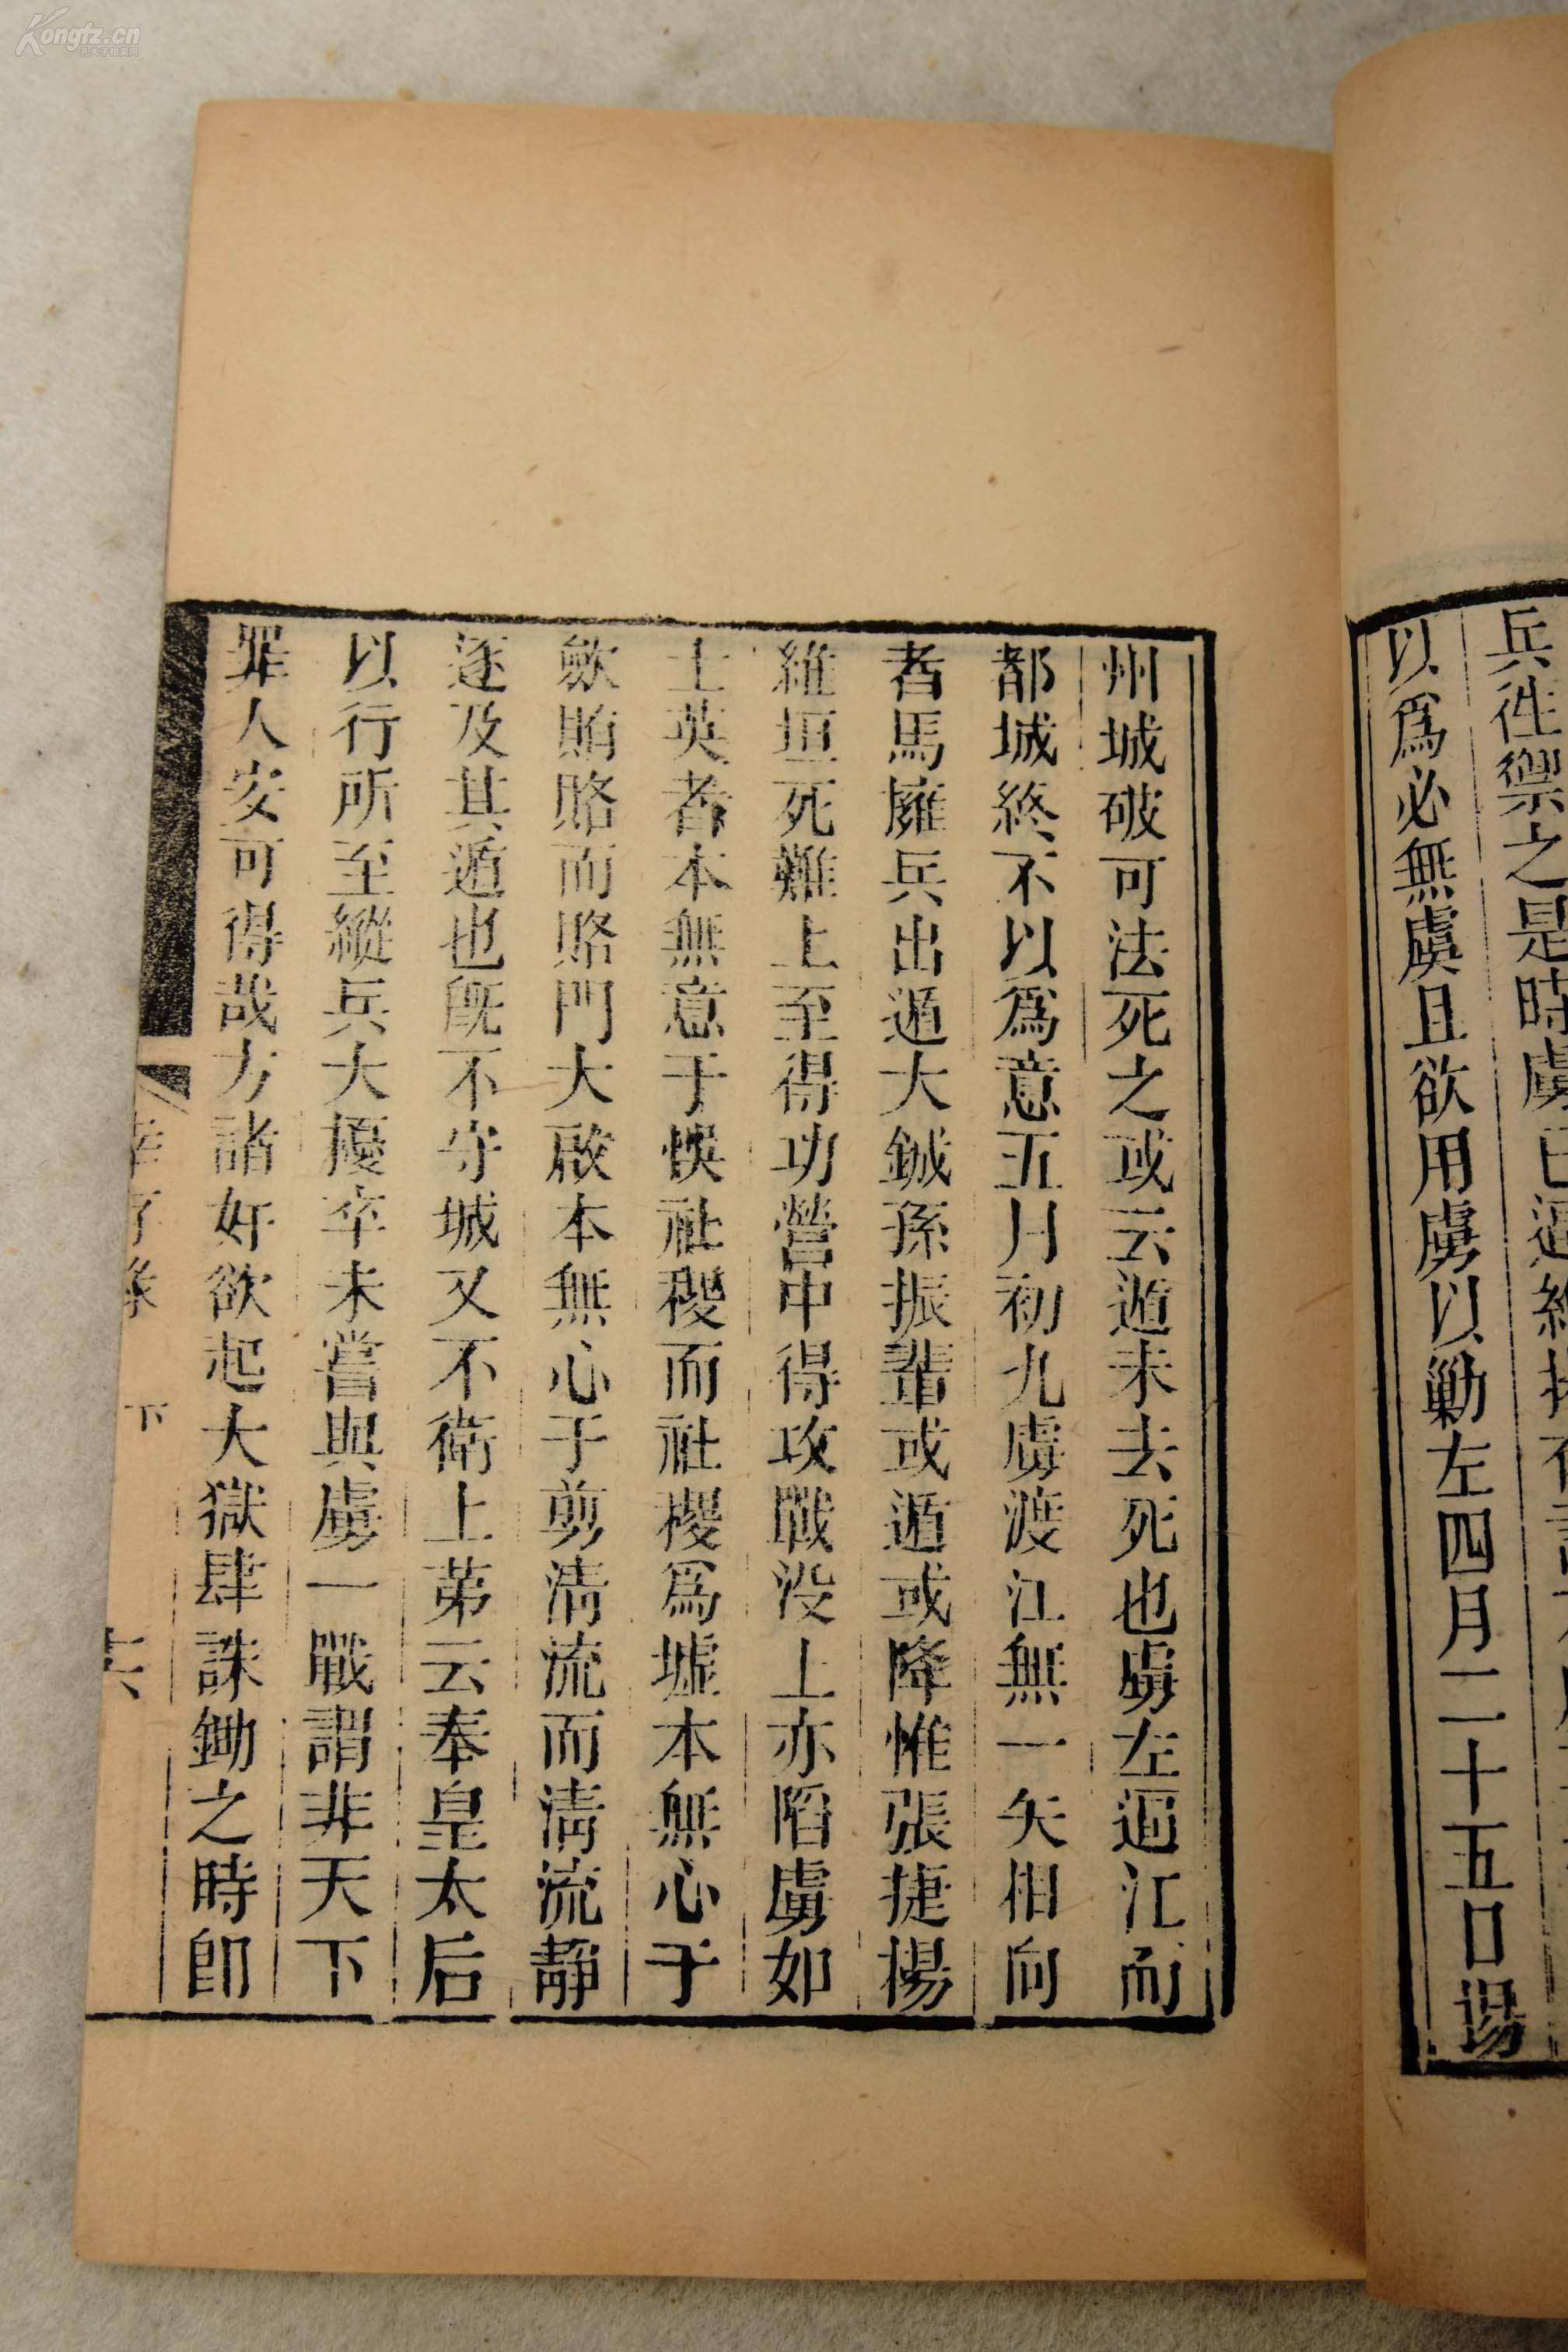 兵徃禦之是時虜已逼
以爲必無虞且欲用虜以勦左四月二十五日揚
州城破可法死之或云遁未去死也虜左逼江而
都城終不以爲意五月初九虜渡江無一矢相向
者馬擁兵出遁大鋮孫振輩或遁或降惟張捷楊
維垣死難上至得功營中得攻戰没上亦陷虜如
士英者本無意于悞社稷而社稷爲墟本無心于
歛賄賂而賂門大啟本無心于剪清流而清流靜
逐及其遁也既不守城又不衛上第云奉皇太后
以行所至縱兵大擾卒未嘗與虜一戰謂非天下
罪人安可得哉方諸奸欲起大獄肆誅鋤之時即
幸存錄 下 十六
Kongfz.cn